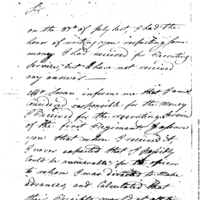 Sir
on the 23d of July last, I had the
honor of writing you respecting some
money I had received for Recruiting
Services, but I have not received
any answer—
Mr Swan informs me that I am
considered responsible for the money
I received for the recruiting service
of the first Regiment. I assure
you that when I received it,
I never expected that I
could be answerable for the officers
to whom I was directed to make
advances, and calculated that
their Receipts would at all